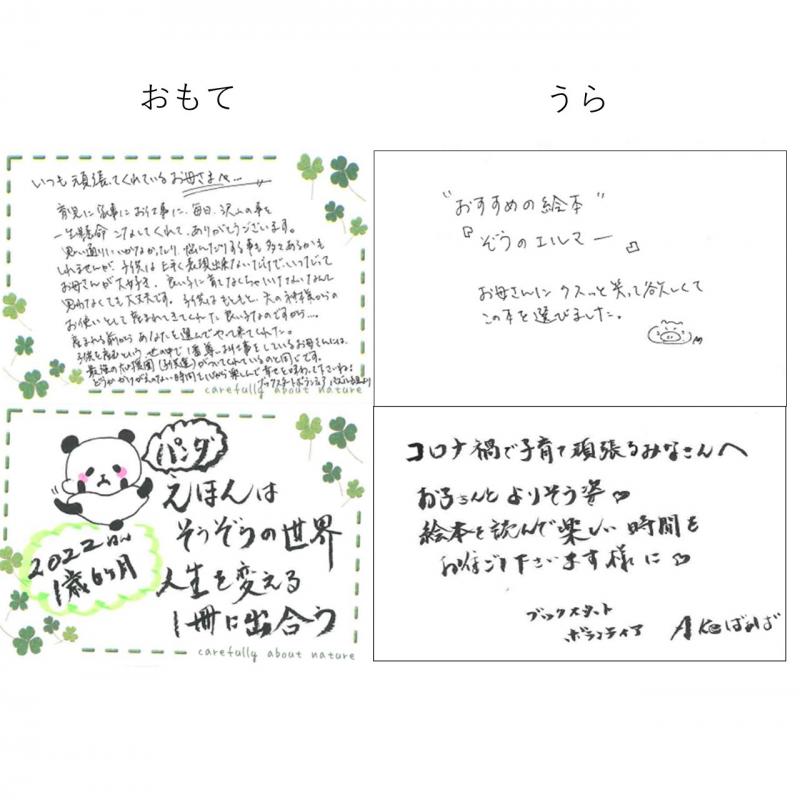 おもて
うら
いつも頑張ってくれているお母さまへ…
育児に家事にお仕事に、毎日、沢山の事を
一生懸命こなしてくれて、ありがとうございます。
思い通りにいかなかったり、悩んだりする事も多々あるかも
しれませんが、子供は上手く表現出来ないだけで、いつだって
お母さんが大好き。良い子に育てなくちゃいけないなんて
思わなくても大丈夫です。子供はもともと、天の神様からの
お使いとして産まれてきてくれた良い子なのですから…。
産まれる前からあなたを選んでやって来てくれた。
子供を産むという世の中で1番尊いお仕事をしているお母さんには、
最強の応援団(子供達)がついてくれているのと同じです。
どうかかけがえのない時間を心から楽しんで幸せを味わって下さいね!
ブックスタートボランティア
carefully about nature
"おすすめの絵本"
『ぞうのエルマー』
お母さんにクスッと笑って欲しくて
この本を選びました。
パンダ
えほんは
そうぞうの世界
人生を変える
1冊に出会う
2022
1歳6ヶ月
carefully about nature
コロナ禍で子育て頑張るみなさんへ
お子さんとよりそう姿♡
絵本を読んで楽しい時間を
お過ごし下さいます様に♡
ブックスタート
ボランティア
AKeばぁば